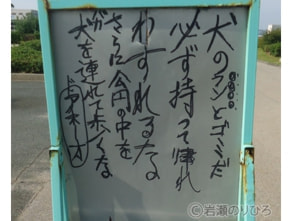 犬のフンとゴミだ
必ず持って帰れ
わすれるな
さらに公園の中を
犬を連れて歩くな
© 岩瀬のりひろ